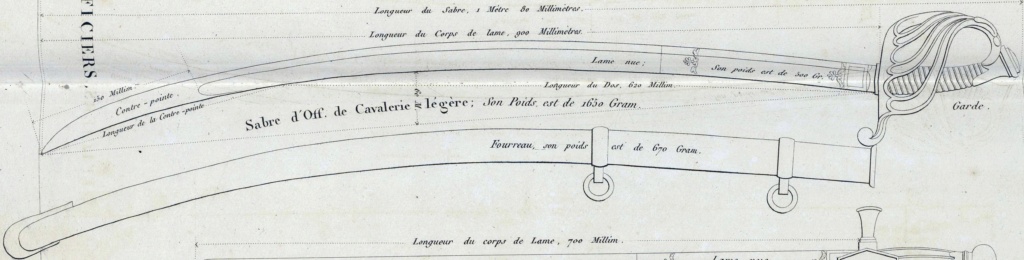 Longueur du Sabre, 1 Métre 80 Millimètres.
Longueur du Corps de lame, 900 Millimetres.
FICIERS
Lame nue;
Son poids est de 500 Gr.
150 Millim.
Contre-pointe.
Longueur de la Contre-pointe
Longueur du Dos, 620 Millim.
Sabre d'Off. de Cavalerie légère; Son Poids, est de 1630 Gram.
Garde.
Fourreau, son poids est de 670 Gram.
Longueur du corps de Lame, 700 Millim.
Lame nue